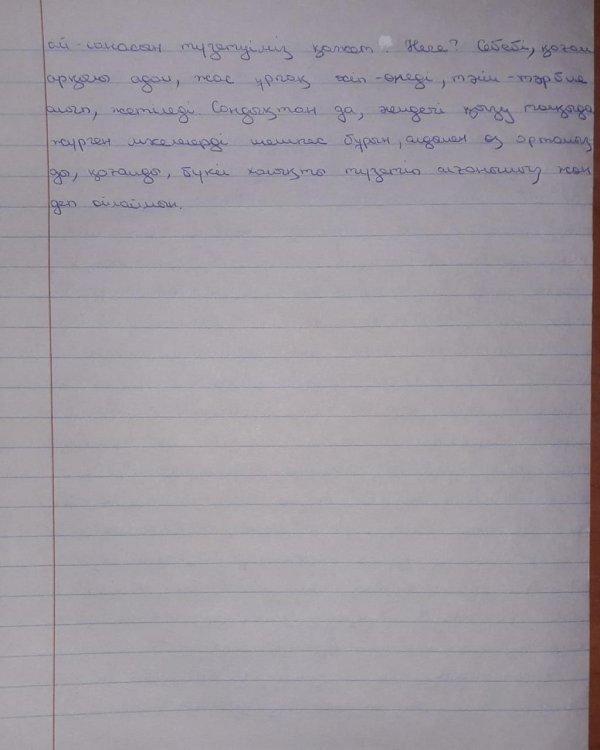 ой-санасын түзетуіміз қажет. Неге? Себебі, қоғам
арқылы адам, жас ұрпақ өсіп-өнеді, тәлім-тәрбие
алып, жетіледі. Сондықтан да, жендеті қызу талқыда
жүрген мәселелерді шешпес бұрын, алдымен өз ортамыз-
ды, қоғамды, бүкіл халықты түзетіп алғанымыз жөн
деп ойлаймын.